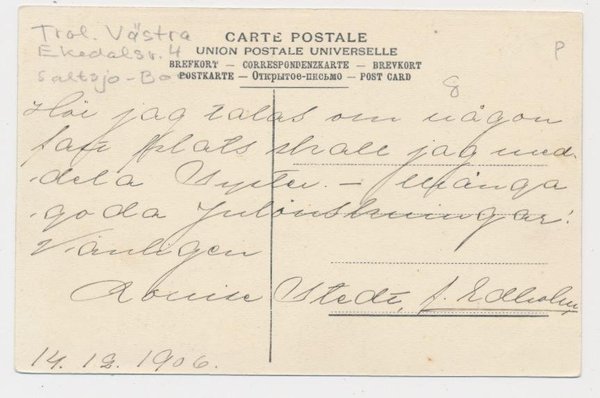 CARTE POSTALE
UNION POSTALE UNIVERSELLE
BREFKORT — CORRESPONDENZKARTE — BREVKORT
POSTKARTE — Открытое-письмо — POST CARD
Trol. Västra
Ekedalsv. 4
Saltsjö-Boo
P
8
Hör jag talas om någon
plats skall jag med-
dela Syster. — Många
goda Julönskningar!
Vänligen
Louise Stedt, f. Edholm,
14.12.1906.